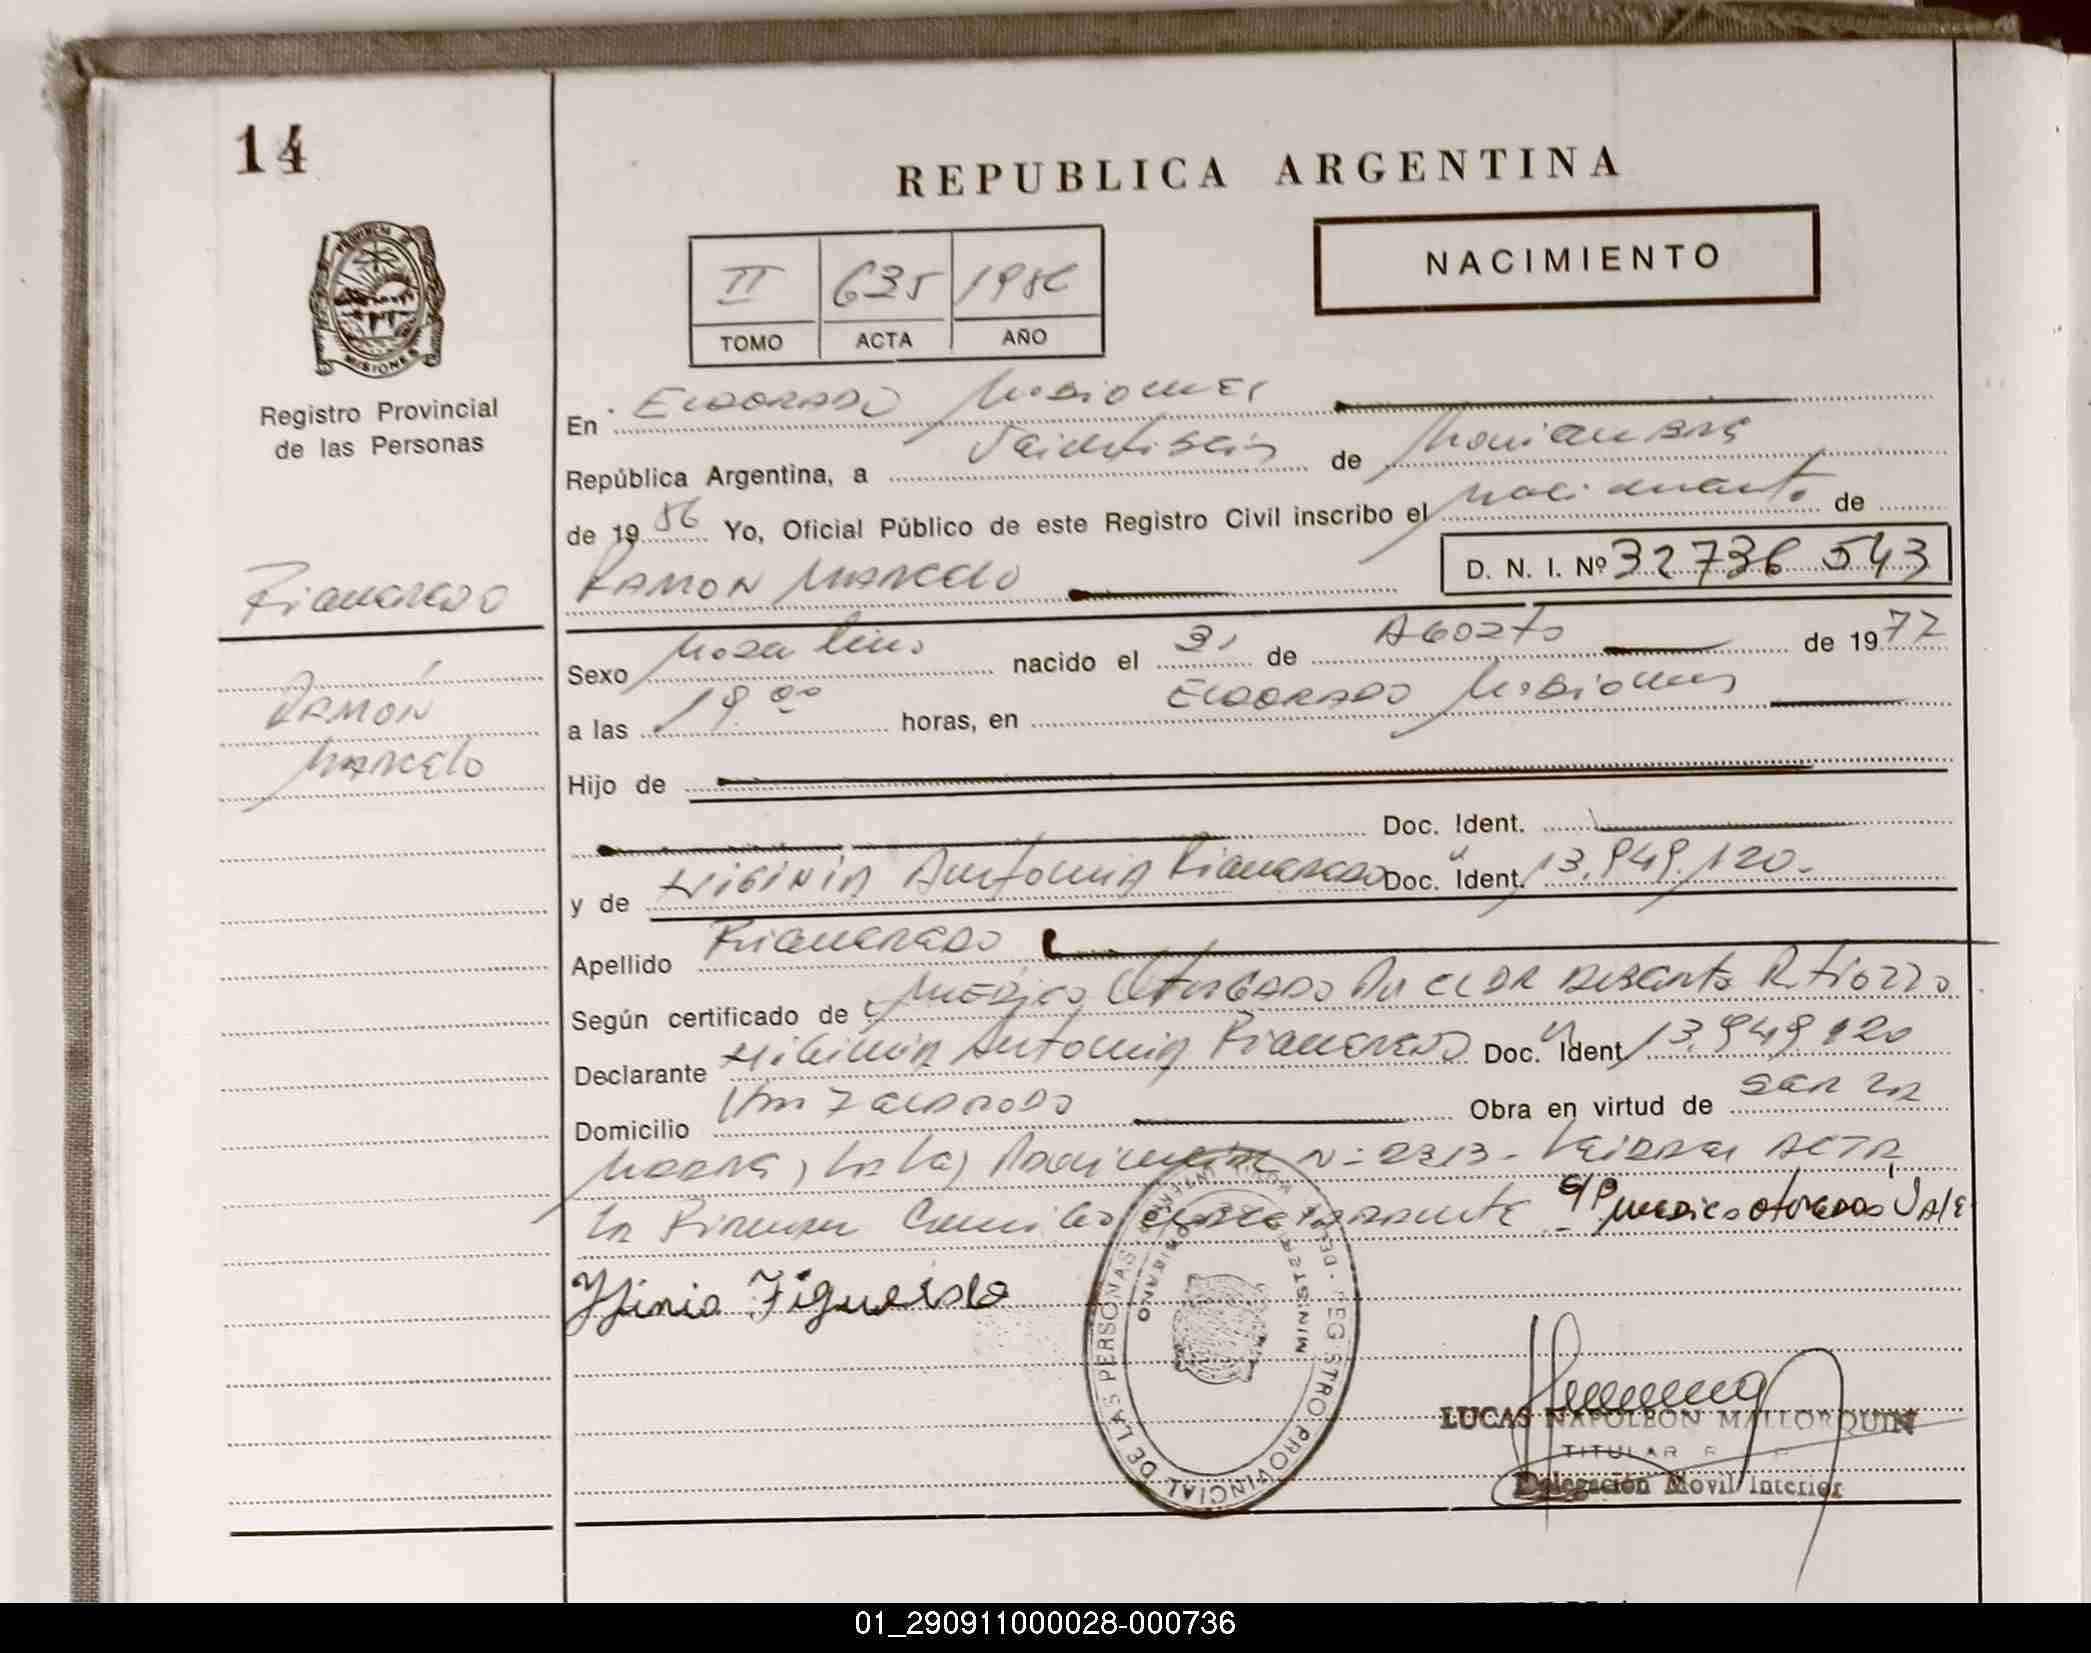 14
REPUBLICA ARGENTINA
NACIMIENTO
II 635 1986
TOMO ACTA AÑO
PROVINCIA DE MISIONES
Registro Provincial
de las Personas
En Eldorado Misiones
República Argentina, a Veintiseis de Noviembre
de 1986 Yo, Oficial Público de este Registro Civil inscribo el nacimiento de
Ramon Marcelo D. N. I. Nº 32736543
Figueredo
Ramón
Marcelo
Sexo Masculino nacido el 31 de Agosto de 1977
a las 19.00 horas, en Eldorado Misiones
Hijo de
Doc. Ident.
y de Higinia Antonia Figueredo Doc. Ident. 13.949.120.
Apellido Figueredo
Según certificado de Medico Otorgado
Declarante Higinia Antonia Figueredo Doc. Ident 13.949.120
Domicilio Obra en virtud de ser la
Madre, Acta
La Firma el declarante E/P Medico otorgado Vale
Higinia Figueredo
REGISTRO PROVINCIAL DE LAS PERSONAS
MINISTERIO DE GOBIERNO
LUCAS NAPOLEON MALLORQUIN
TITULAR
Delegación Movil Interior
01_290911000028-000736